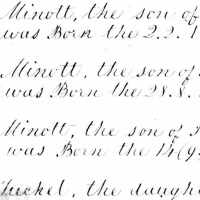 Minott, the son of
was Born the 22. 1
Minott, the son of
was Born the 28. 8.
Minott, the son of
was Born the 14 (9
Tuckel, the daugh